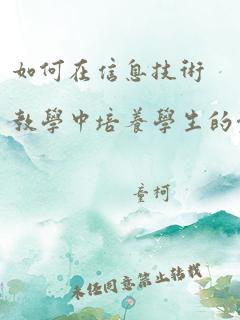 如何在信息技術
教學中培養學生的
童柯
未经同意禁止转载